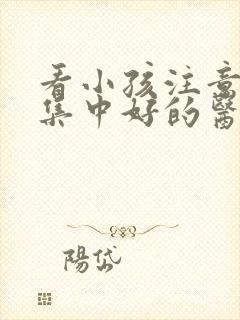 看小孩注意
集中好的醫
陽岱